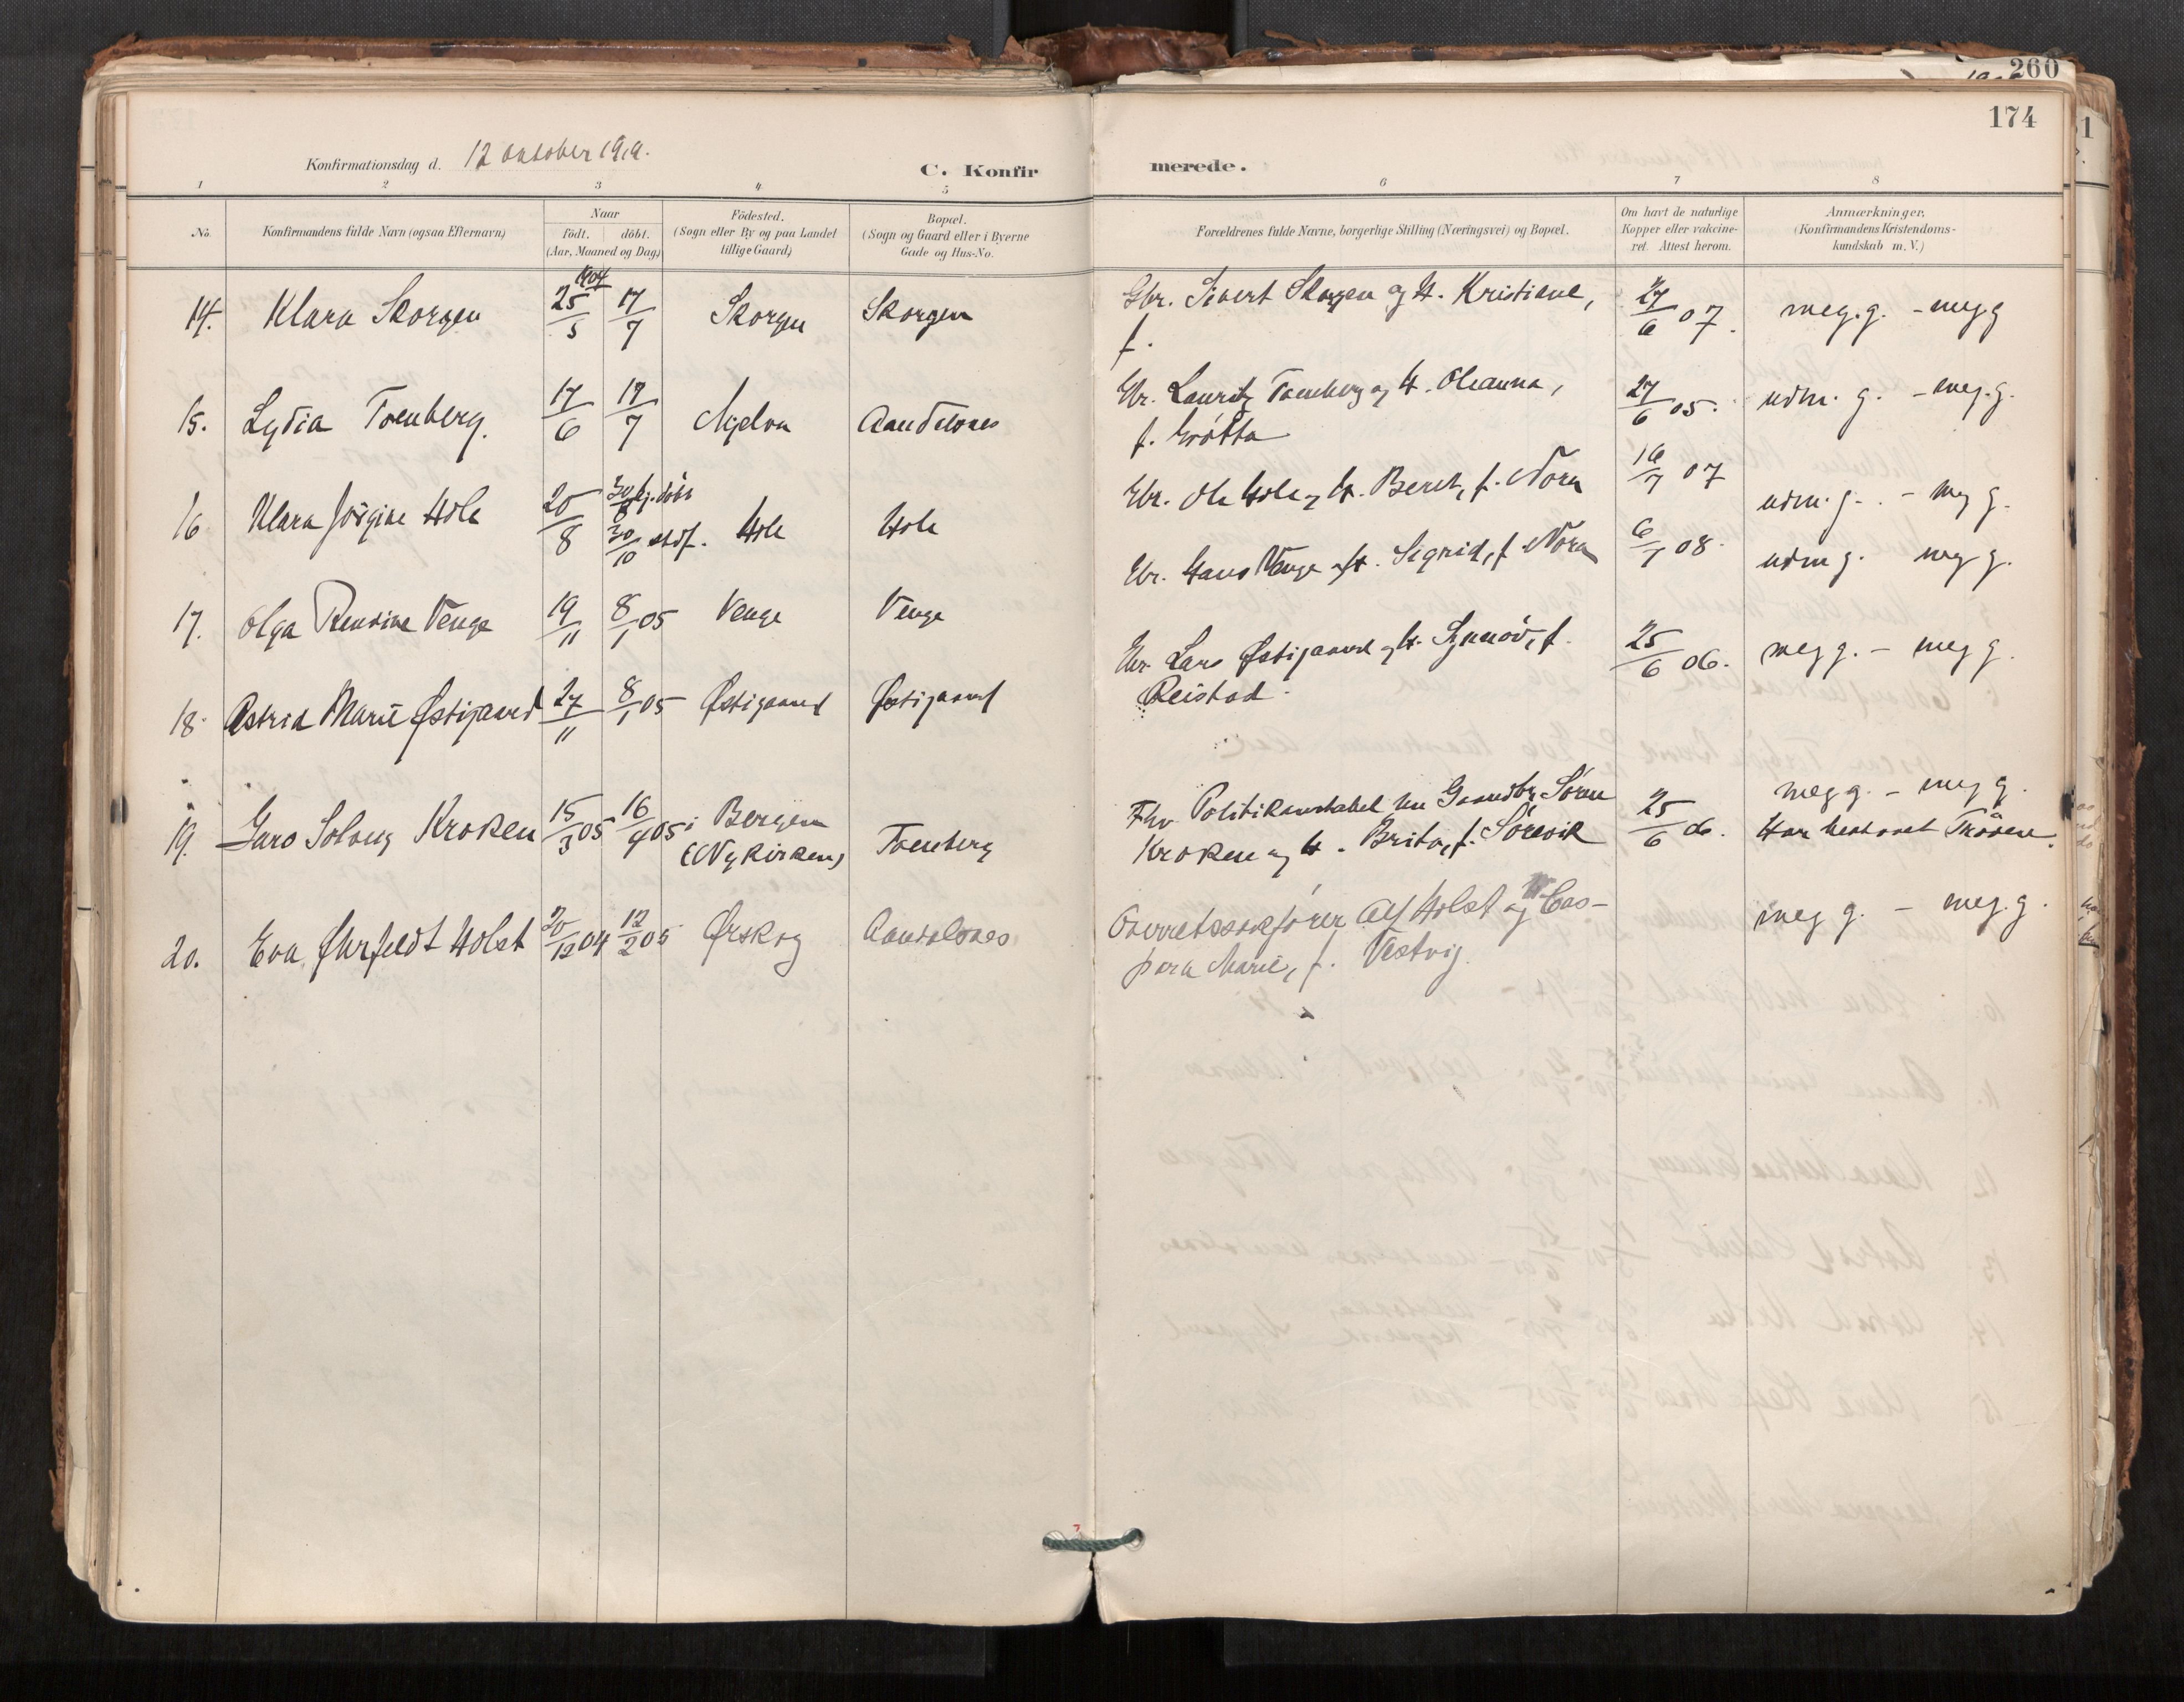 260
174
Konfirmationsdag d. 12 oktober 1919.
C. Konfirmerede.
1 2 3 4 5 6 7 8
No.
Konfirmandens fulde Navn (ogsaa Efternavn)
Naar
födt. döbt.
(Aar, Maaned og Dag)
Födested.
(Sogn eller By og paa Landet
tillige Gaard)
Bopæl.
(Sogn og Gaard eller i Byerne
Gade og Hus-No.
Forældrenes fulde Navne, borgerlige Stilling (Næringsvei) og Bopæl.
Om havt de naturlige
Kopper eller vakcine-
ret. Attest herom.
Anmærkninger.
(Konfirmandens Kristendoms-
kundskab m. V.)
14. Klara Skorgen 1904 25/5 17/7 Skorgen Skorgen Gbr. Sivert Skorgen og H. Kristiane, 27/6 07. meg.g. - meg g
f.
15. Lydia Tornberg. 17/6 17/7 Aandalsnes Gbr. Lauritz Tornberg og H. Oleanna, 27/6 05. udm. g. - meg. g.
f. Grøtta
16 Klara Jörgine Hole 20/8 30/8 hj. döbt Hole Hole Gbr. Ole Hole og H. Beret, f. Nora 16/7 07 udm. g. - meg g.
30/10 stadf.
17. Olga Rensine Venge 19/11 8/1 05 Venge Venge Gbr. Hans Venge og H. Sigrid, f. Nora 6/7 08. udm g. meg g.
18. Astrid Marie Østigaard 27/11 8/1 05 Østigaard Østigaard Gbr. Lars Østigaard og H. Synnöv, f. 25/6 06. meg g. - meg g.
Reistad.
19. Guro Solveig Kroken 15/3 05 16/4 05 i Bergen Tornberg Fhv. Politikonstabel nu Gaardbr. Sören 25/6 06. meg g. - meg g.
(Nykirken) Kroken og H. Brita, f. Sörevik Har bestaaet Pröven.
20. Eva Øhrfeldt Holst 20/12 04 12/2 05 Ørskog Aandalsnes Overretssakförer Alf Holst og H. Cas- meg g. - meg. g.
para Marie, f. Vestvig.
7